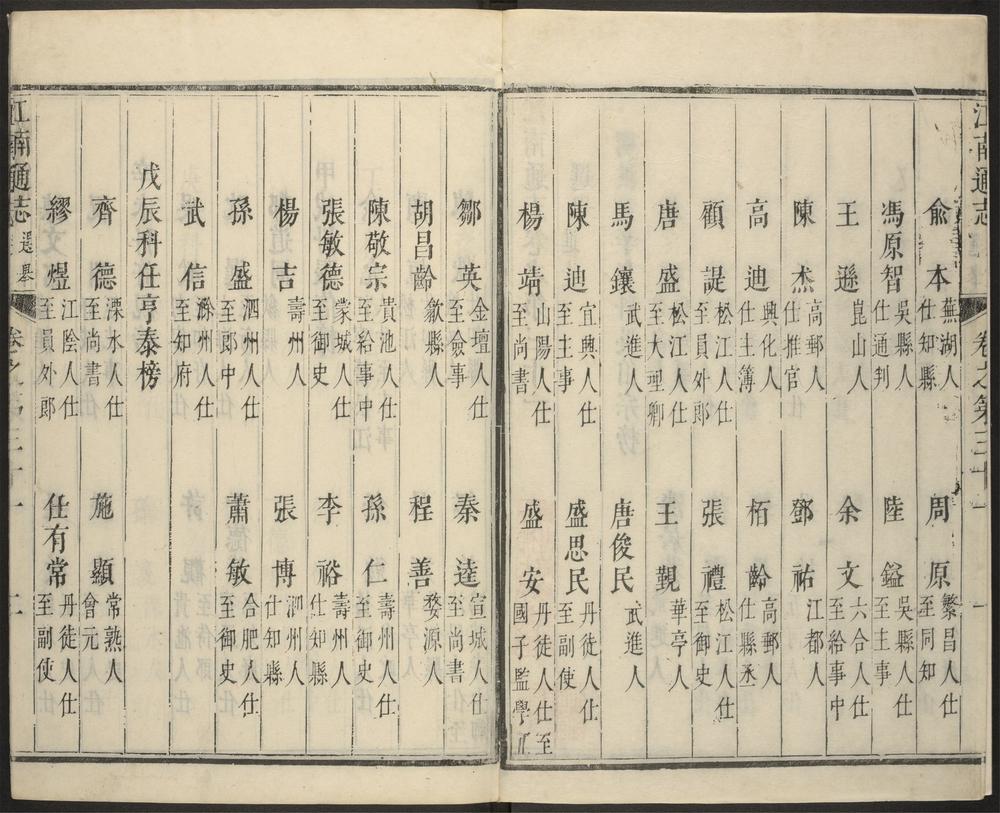 江南通志
卷之第三十一
俞本 蕪湖人仕知縣 周原 繁昌人仕至同知
馮原智 吳縣人仕通判 陸鎰 吳縣人仕至主事
王遜 崑山人 余文 六合人仕至給事中
陳杰 高郵人仕推官 鄧祐 江都人
高迪 興化人仕主簿 栢齡 高郵人仕縣丞
顧諟 松江人仕至員外郎 張禮 松江人仕至御史
唐盛 松江人仕至大理卿 王觀 華亭人
馬鑲 武進人 唐俊民 武進人
陳迪 宜興人仕至主事 盛思民 丹徒人仕至副使
楊靖 山陽人仕至尚書 盛安 丹徒人仕至國子監學正
鄒英 金壇人仕至僉事 秦逵 宣城人仕至尚書
胡昌齡 歙縣人 程善 婺源人
陳敬宗 貴池人仕至給事中 孫仁 壽州人仕至御史
張敏德 蒙城人仕至御史 李裕 壽州人仕知縣
楊吉 壽州人 張博 泗州人仕知縣
孫盛 泗州人仕至郎中 蕭敏 合肥人仕至御史
武信 滁州人仕至知府
戊辰科任亨泰榜
齊德 溧水人仕至尚書 施顯 常熟人會元
繆煜 江陰人仕至員外郎 仕有常 丹徒人仕至副使
江南通志 選舉